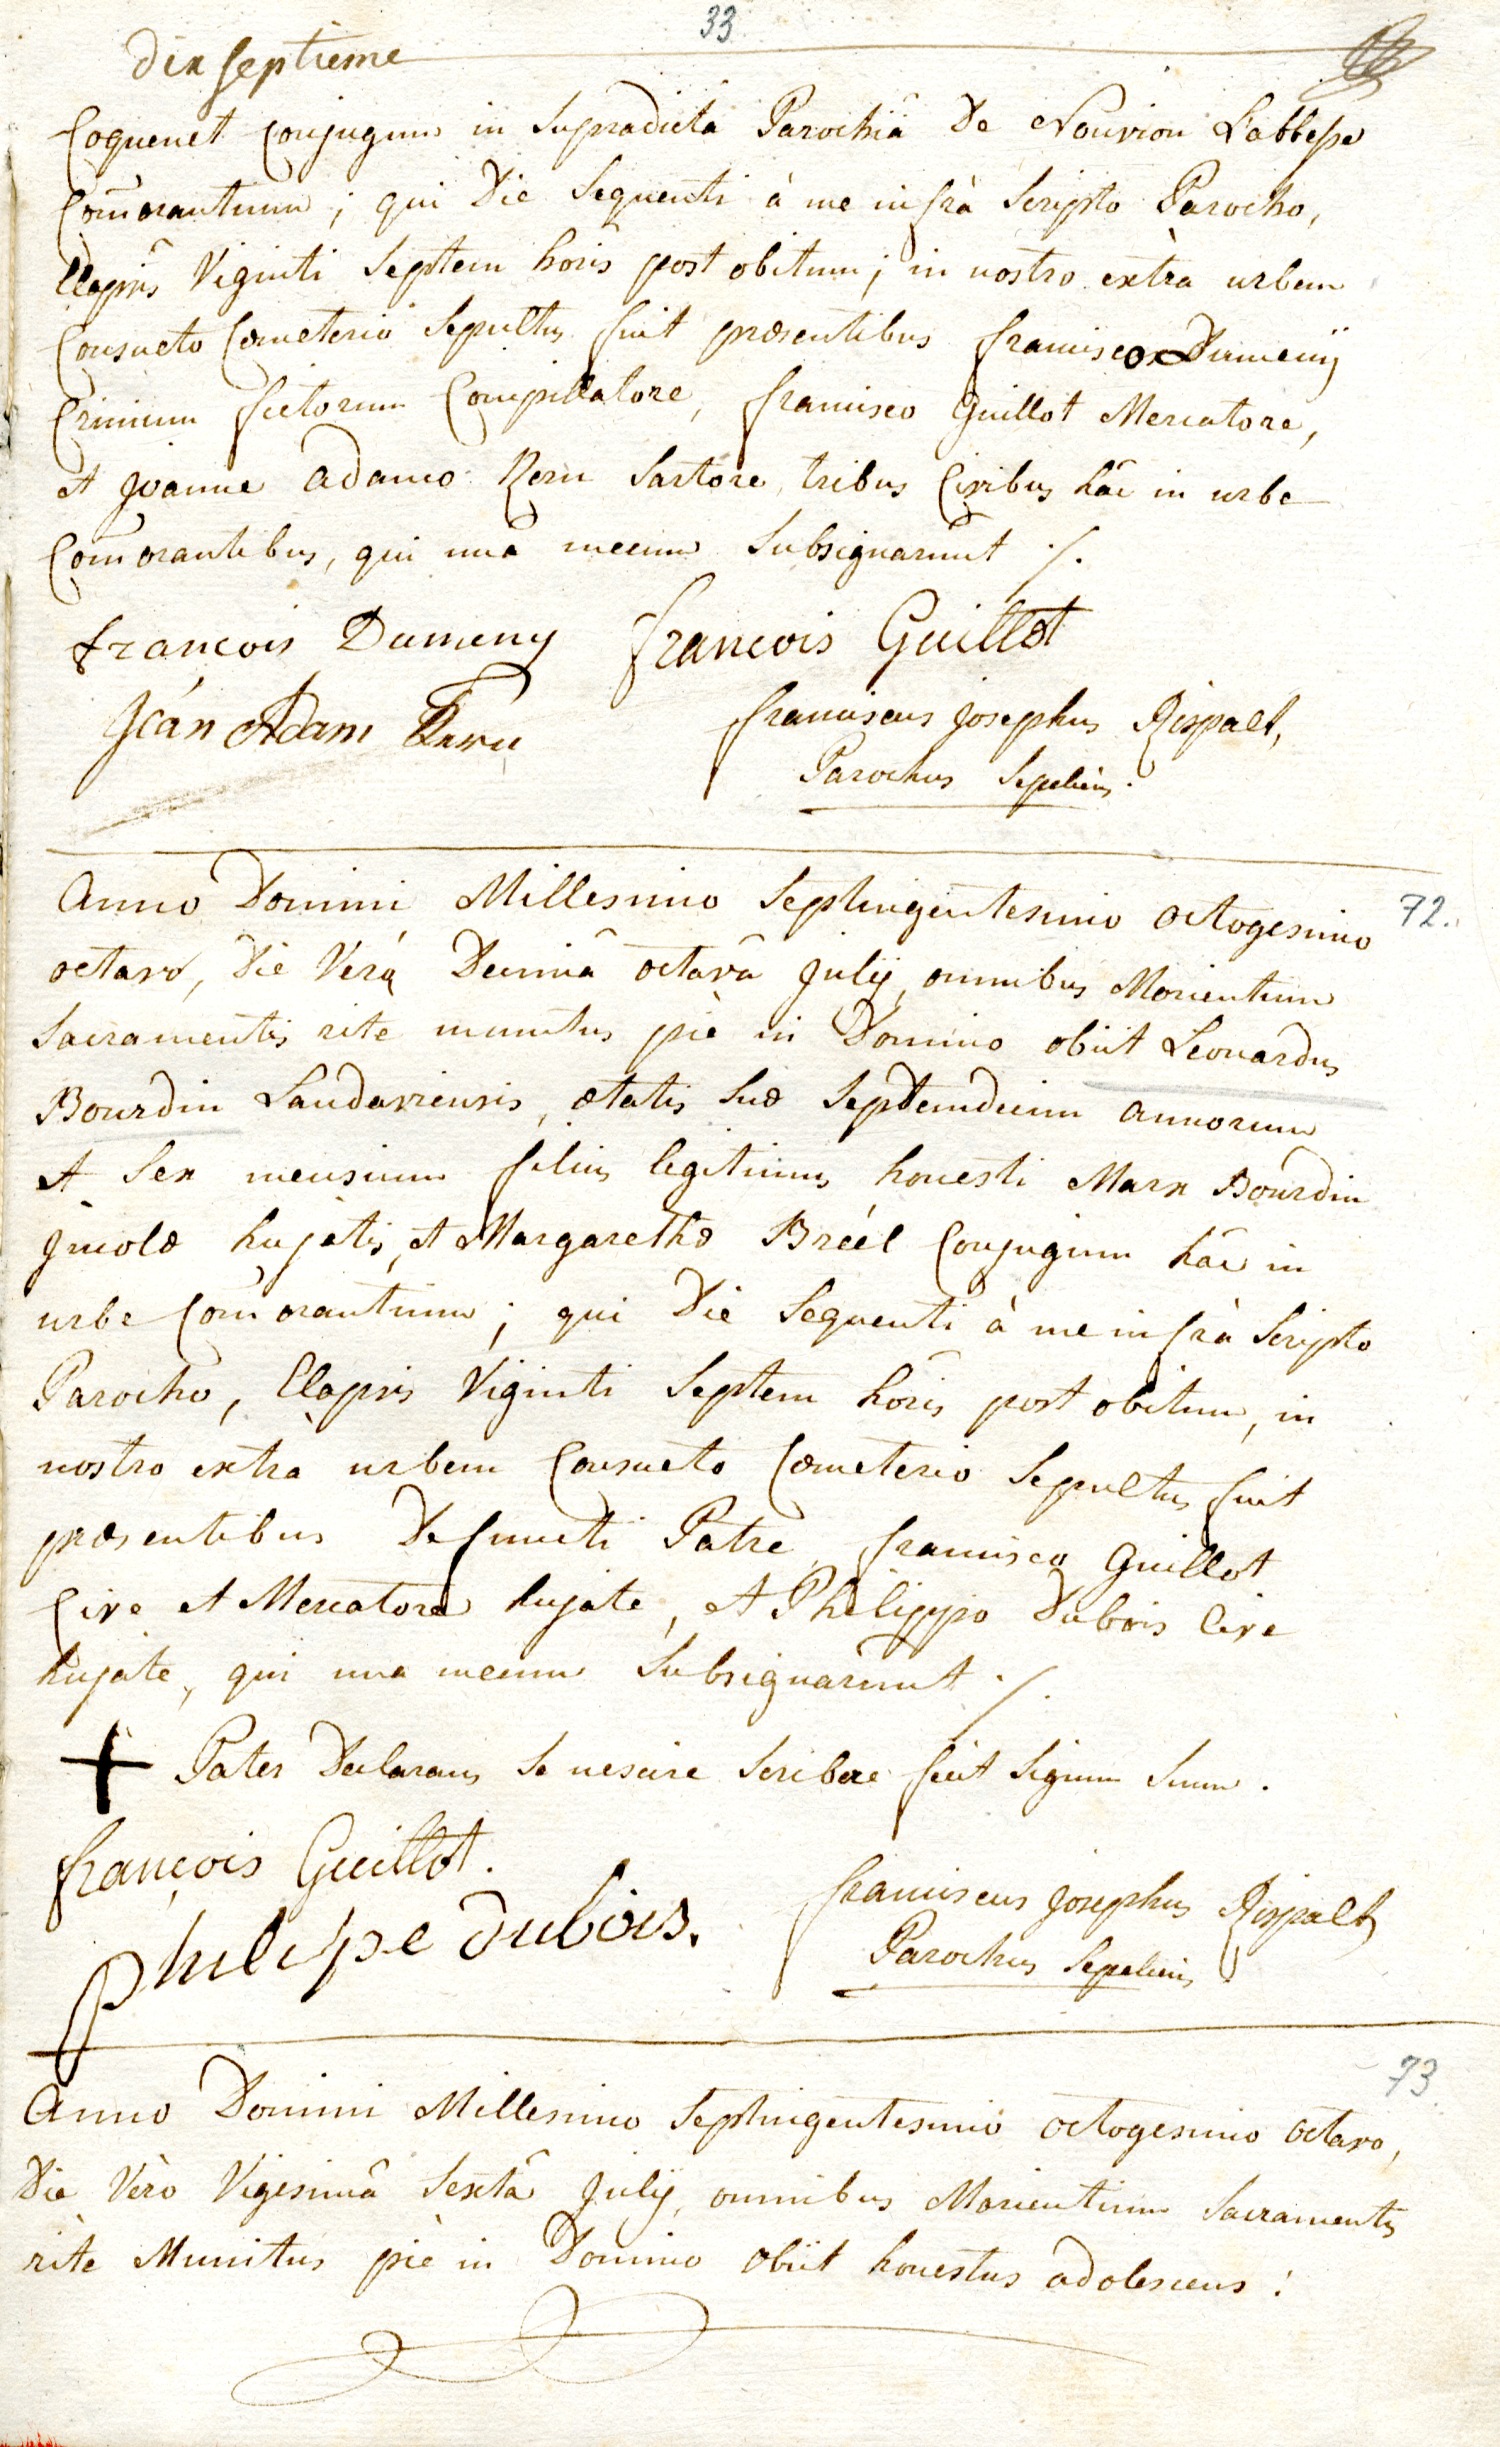 33
dix septieme
Coquenet Conjugum in Supradictâ Parochiâ De Nouvion L'abbesse
Com̃orantium; qui Die Sequenti à me infrà Scripto Parocho,
Elapsis Viginti Septem horis post obitum; in nostro extrà urbem
Consueto Cœmeterio Sepultus fuit præsentibus francisco Dumenij
Crinium fictorum Compillatore, francisco Guillot Mercatore,
et Joanne adamo Kern Sartore, tribus Civibus hâc in urbe
Com̃orantibus, qui unà mecum Subsignarunt ./.
francois Dumeny francois Guillot
Jean Adam Kern
franciscus Josephus Rispalt,
Parochus Sepeliens.
72.
Anno Domini Millesimo Septingentesimo octogesimo
octavo, Die Verò Decimâ octavâ Julij, omnibus Morientium
Sacramentis rite munitus piè in Domino obiit Leonardus
Bourdin Landaviensis, ætatis Suæ Septemdecim annorum
et Sex mensium filius legitimus honesti Marx Bourdin
Jncolæ hujatis, et Margarethæ Bréel Conjugum hâc in
urbe Com̃orantium; qui Die Sequenti à me infrà Scripto
Parocho, Elapsis Viginti Septem horis post obitum, in
nostro extrà urbem Consueto Cœmeterio Sepultus fuit
præsentibus Defuncti Patre, francisco Guillot
Cive et Mercatore hujate, et Philippo Dubois Cive
hujate, qui una mecum Subsignarunt ./.
+ Pater Declarans Se nescire Scribere fecit Signum Suum.
françois Guillot.
philipe dubois.
franciscus Josephus Rispalt
Parochus Sepeliens
73
Anno Domini Millesimo Septingentesimo octogesimo octavo,
Die Verò Vigesimâ Sextâ Julij, omnibus Morientium Sacramentis
rite Munitus piè in Domino obiit honestus adolescens :